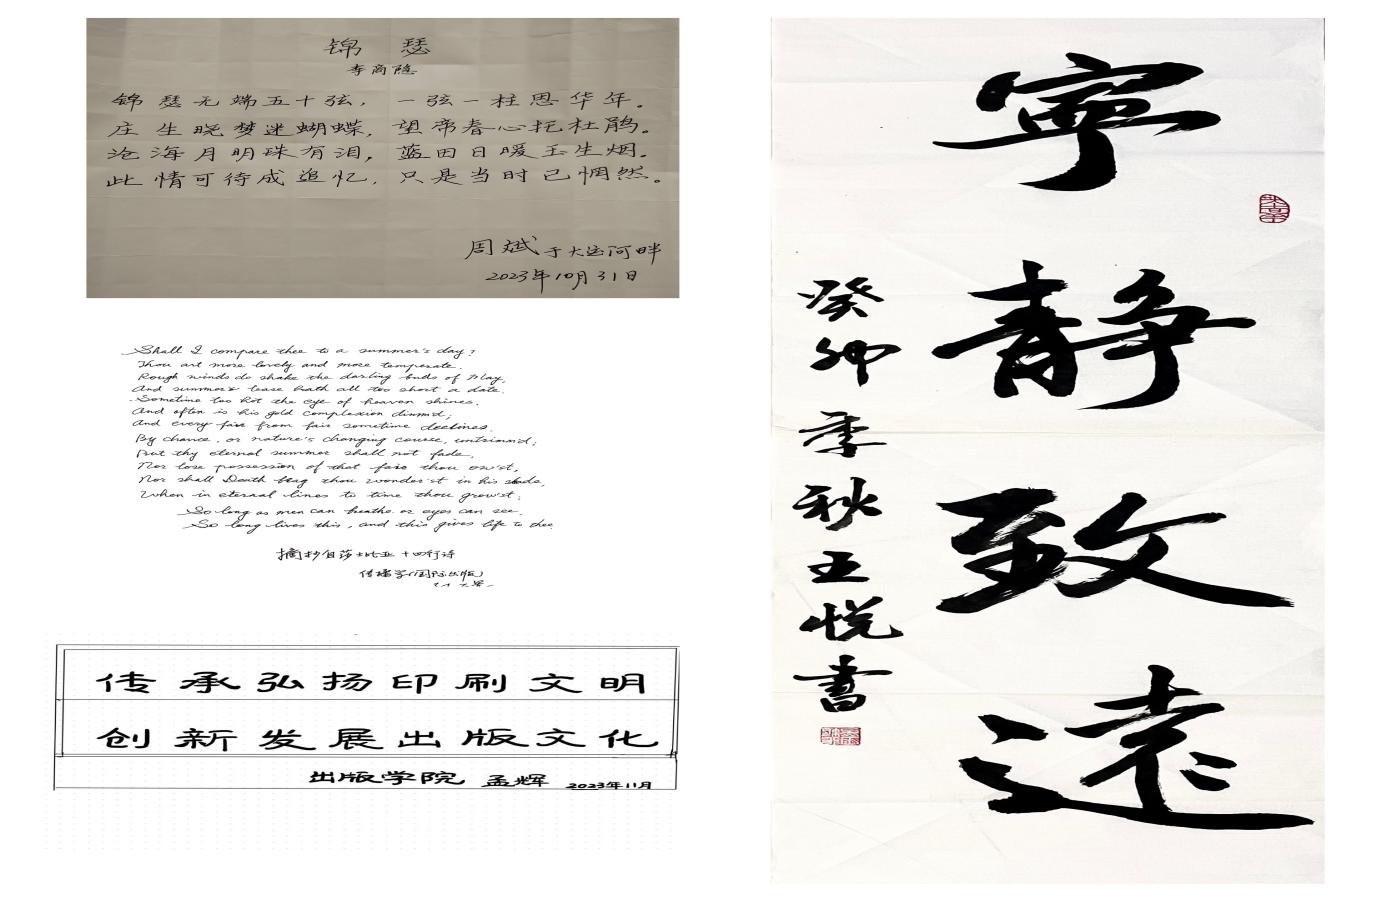 锦 瑟
李商隐
锦瑟无端五十弦，一弦一柱思华年。
庄生晓梦迷蝴蝶，望帝春心托杜鹃。
沧海月明珠有泪，蓝田日暖玉生烟。
此情可待成追忆，只是当时已惘然。
周斌于大运河畔
2023年10月31日
Shall I compare thee to a summer's day?
Thou art more lovely and more temperate.
Rough winds do shake the darling buds of May,
And summer's lease hath all too short a date.
Sometime too hot the eye of heaven shines,
And often is his gold complexion dimm'd;
And every fair from fair sometime declines,
By chance, or nature's changing course, untrimm'd;
But thy eternal summer shall not fade,
Nor lose possession of that fair thou ow'st,
Nor shall Death brag thou wander'st in his shade,
When in eternal lines to time thou grow'st;
So long as men can breathe or eyes can see,
So long lives this, and this gives life to thee.
摘抄自莎士比亚十四行诗
传播学(国际出版)
传承弘扬印刷文明
创新发展出版文化
出版学院 孟辉 2023年11月
寧靜致遠
癸卯季秋王悦書